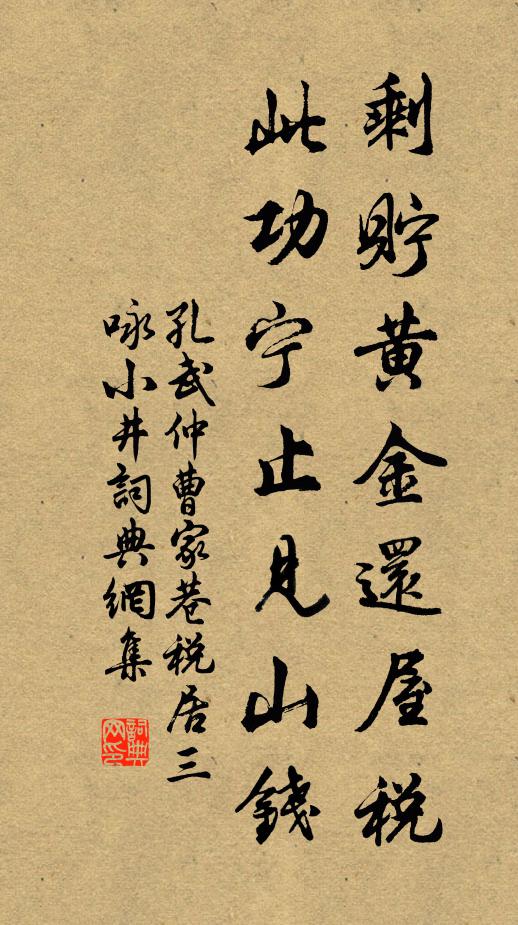 剩貯黃金還屋税
此功宁止見山錢
孔武仲曹家巷税居三
咏小井詞典網集
詞典
网印